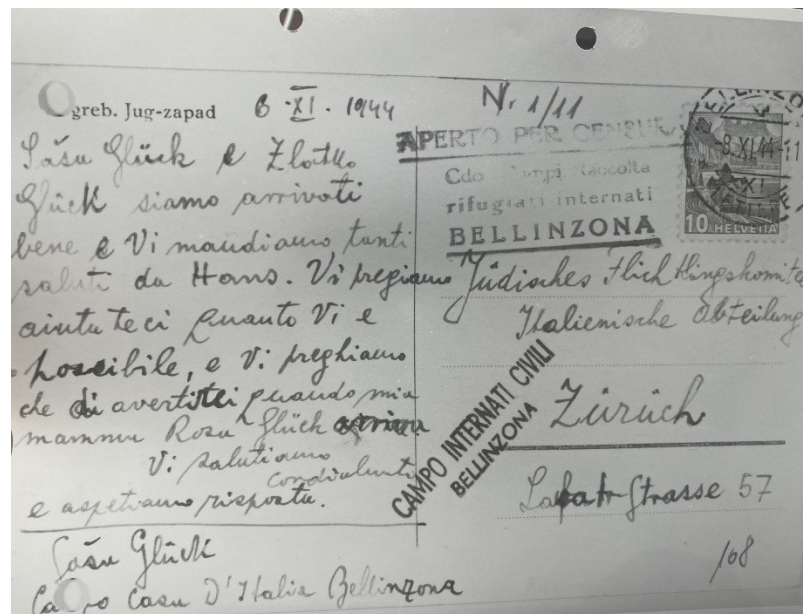 greb. Jug-zapad 6 · XI · 1944
Sašu Glück e Zlatko
Glück siamo arrivati
bene e Vi mandiamo tanti
saluti da Hans. Vi pregiamo
aiutateci quanto Vi e
possibile, e Vi preghiamo
che di avertitei quando mia
mammu Rosa Glück
Vi salutiamo
e aspetiamo risposta.
Sašu Glück
Ca o Casa D'Italia Bellinzona
N. 1/11
APERTO PER CENSURA
Cdo Campi Raccolta
rifugiati internati
BELLINZONA
8 XI 44 - 11
10 HELVETIA
Jüdisches Flichtlingskomite
Italienische Abteilung
Zürüch
Strasse 57
CAMPO INTERNATI CIVILI
BELLINZONA
108